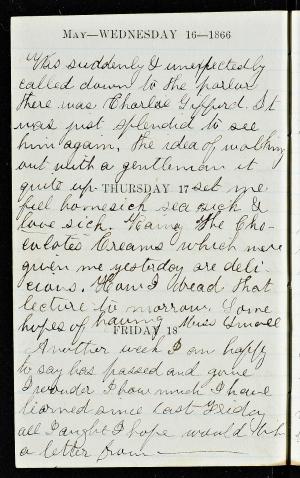 May—WEDNESDAY 16—1866
Was suddenly & unexpectedly
called down to the parlor
there was Charlse Gifford. It
was just splendid to see
him again, the idea of walking
out with a gentleman it
quite up set me
THURSDAY 17
feel homesick sea sick &
love sick. Having the Cho-
colates Creams which were
given me yesterday are deli-
cious. How I dread that
lecture to morrow. Some
hopes of having Miss
FRIDAY 18
Another week I am happy
to say has passed and gone
I wonder how much I have
learned since last Friday
all I ought I hope would
a letter from